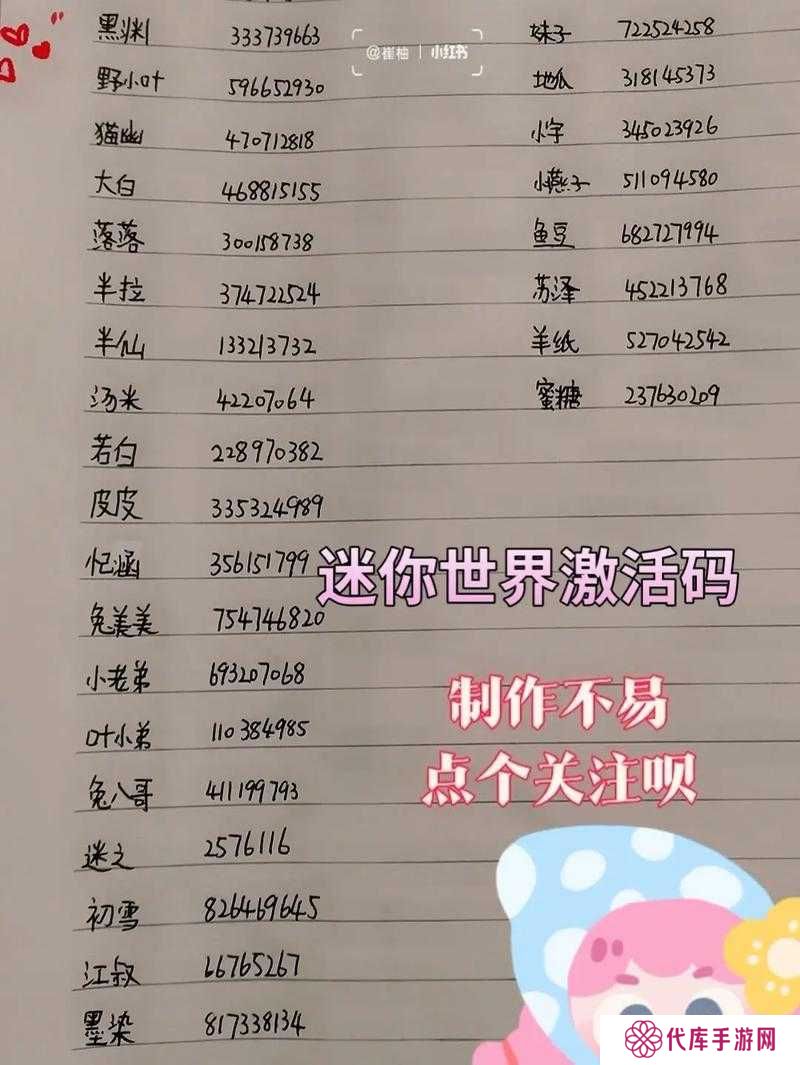 黑渊 333739663
野小叶 596652930
猫幽 470712818
大白 468815155
落落 300158738
半拉 374722524
半仙 133213732
汤米 42207064
若白 228970382
皮皮 335324989
忆涵 356151799
兔美美 754746820
小老弟 693207068
叶小弟 110384985
兔八哥 411199793
迷之 2576116
初雪 826469645
江叔 66765267
墨染 817338134
@崔柚 | 小红书
妹子 722524258
地瓜 318145373
小宇 345023926
小燕子 511094580
鱼豆 682727994
苏泽 452213768
羊纸 527042542
蜜糖 237630209
迷你世界激活码
制作不易
点个关注呗
代库手游网